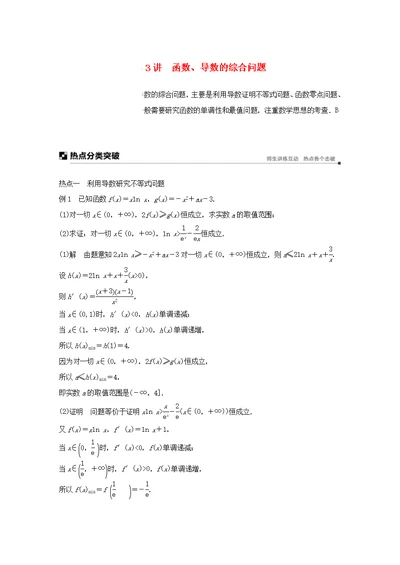 3讲 函数、导数的综合问题
数的综合问题，主要是利用导数证明不等式问题、函数零点问题、
般需要研究函数的单调性和最值问题，注重数学思想的考查．B
热点分类突破
热点一 利用导数研究不等式问题
例1 已知函数 f(x)＝xln x，g(x)＝－x²＋ax－3.
(1)对一切x∈(0，＋∞)，2f(x)≥g(x)恒成立，求实数a的取值范围；
(2)求证：对一切x∈(0，＋∞)，ln x>1/eˣ－2/ex恒成立．
(1)解 由题意知2xln x≥－x²＋ax－3对一切x∈(0，＋∞)恒成立，则a≤2ln x＋x＋3/x.
设h(x)＝2ln x＋x＋3/x(x>0)，
则h′(x)＝(x＋3)(x－1)/x²，
当x∈(0,1)时，h′(x)<0，h(x)单调递减；
当x∈(1，＋∞)时，h′(x)>0，h(x)单调递增，
所以h(x)min＝h(1)＝4.
因为对一切x∈(0，＋∞)，2f(x)≥g(x)恒成立，
所以a≤h(x)min＝4，
即实数a的取值范围是(－∞，4]．
(2)证明 问题等价于证明xln x>x/eˣ－2/e(x∈(0，＋∞))恒成立．
又f(x)＝xln x，f′(x)＝ln x＋1，
当x∈(0，1/e)时，f′(x)<0，f(x)单调递减；
当x∈(1/e，＋∞)时，f′(x)>0，f(x)单调递增，
所以f(x)min＝f(1/e)＝－1/e.